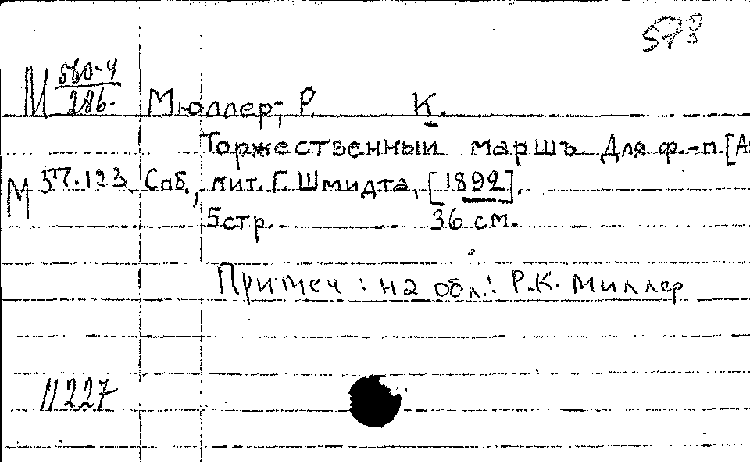 578
М 580-4/286. Мюллер, Р. К.
Торжественный маршъ для ф.-п. [А
М 57.123 Спб., лит. Г. Шмидта, [1892].
5стр. 36 см.
Примеч: на обл.: Р.К. Миллер
11227